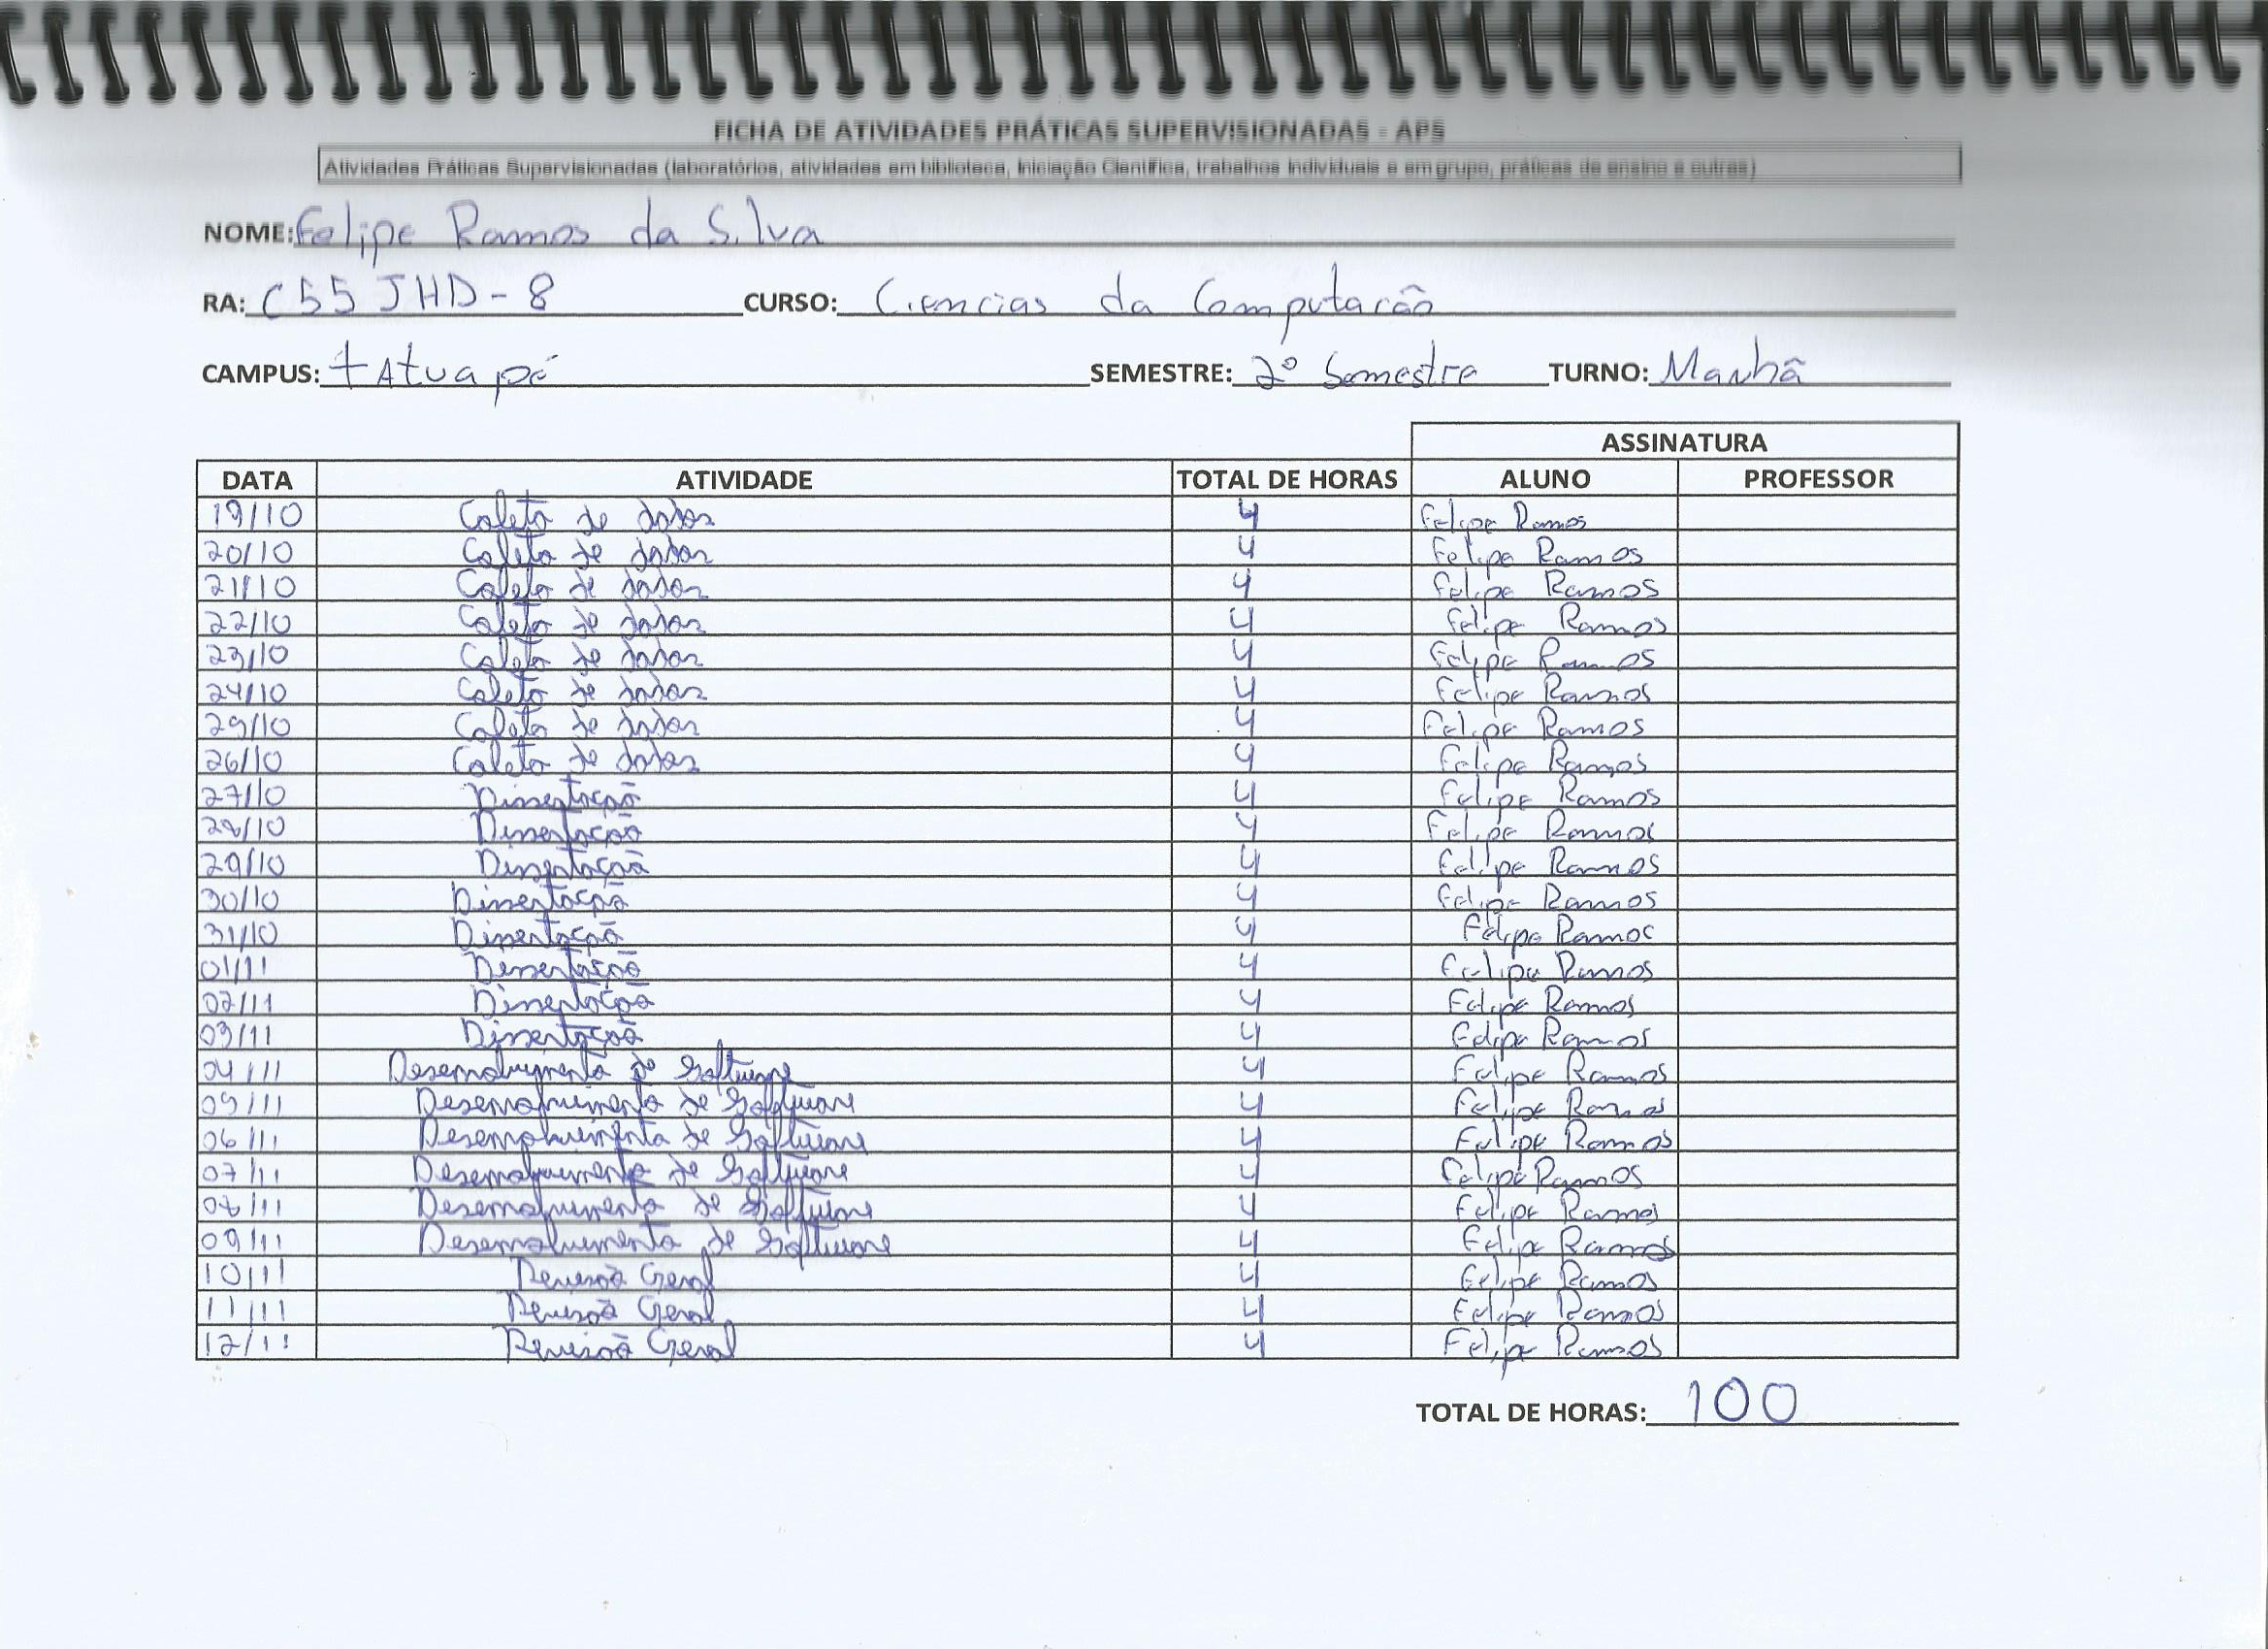 FICHA DE ATIVIDADES PRÁTICAS SUPERVISIONADAS - APS
Atividades Práticas Supervisionadas (laboratórios, atividades em biblioteca, Iniciação Científica, trabalhos individuais e em grupo, práticas de ensino e outras)
NOME: Felipe Ramos da Silva
RA: C55JHD-8 CURSO: Ciencias da Computacão
CAMPUS: tAtuapé SEMESTRE: 2º Semestre TURNO: Manhã
ASSINATURA
DATA ATIVIDADE TOTAL DE HORAS ALUNO PROFESSOR
19/10 Coleta de dados 4 Felipe Ramos
20/10 Coleta de dados 4 Felipe Ramos
21/10 Coleta de dados 4 Felipe Ramos
22/10 Coleta de dados 4 Felipe Ramos
23/10 Coleta de dados 4 Felipe Ramos
24/10 Coleta de dados 4 Felipe Ramos
25/10 Coleta de dados 4 Felipe Ramos
26/10 Coleta de dados 4 Felipe Ramos
27/10 Dissertação 4 Felipe Ramos
28/10 Dissertação 4 Felipe Ramos
29/10 Dissertação 4 Felipe Ramos
30/10 Dissertação 4 Felipe Ramos
31/10 Dissertação 4 Felipe Ramos
01/11 Dissertação 4 Felipe Ramos
02/11 Dissertação 4 Felipe Ramos
03/11 Dissertação 4 Felipe Ramos
04/11 Desenvolvimento de Software 4 Felipe Ramos
05/11 Desenvolvimento de Software 4 Felipe Ramos
06/11 Desenvolvimento de Software 4 Felipe Ramos
07/11 Desenvolvimento de Software 4 Felipe Ramos
08/11 Desenvolvimento de Software 4 Felipe Ramos
09/11 Desenvolvimento de Software 4 Felipe Ramos
10/11 Revisão Geral 4 Felipe Ramos
11/11 Revisão Geral 4 Felipe Ramos
12/11 Revisão Geral 4 Felipe Ramos
TOTAL DE HORAS: 100